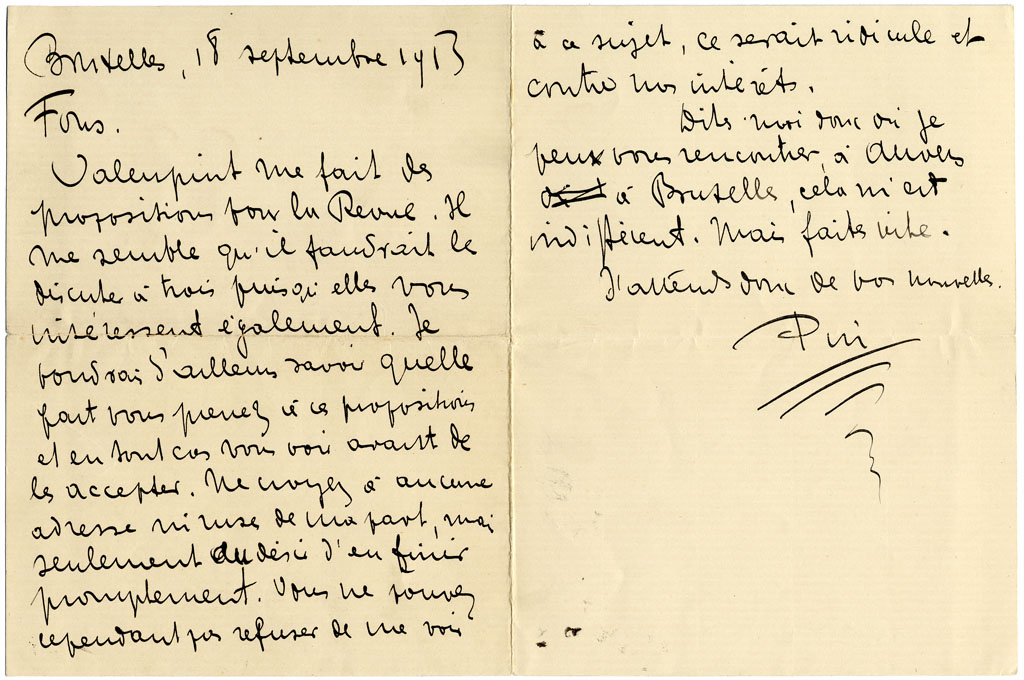 Bruxelles, 18 septembre 1913
Fons.
Valenpint me fait des
propositions pour la Revue. Il
me semble qu'il faudrait le
discuter à trois puisqu'elles vous
intéressent également. Je
voudrais d'ailleurs savoir quelle
part vous prenez à ces propositions
et en tout cas vous voir avant de
les accepter. Ne croyez à aucune
adresse ni ruse de ma part, mais
seulement au désir d'en finir
promptement. Vous ne pouvez
cependant pas refuser de me voir
à ce sujet, ce serait ridicule et
contre nos intérêts.
Dites-moi donc où je
peux vous rencontrer, à Anvers
à Bruxelle, cela m'est
indifférent. Mais faites vite.
J'attends donc de vos nouvelles.